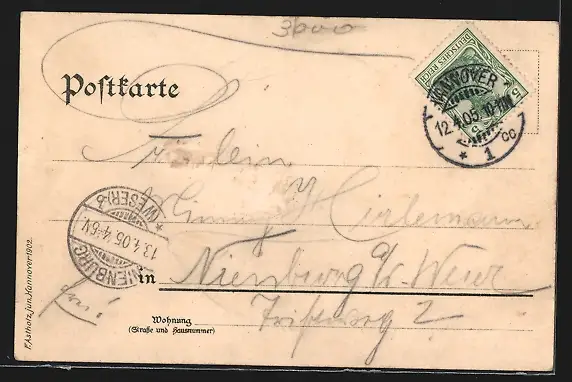 3600
Postkarte
DEUTSCHES REICH
5
HANNOVER
12.4.05.10-11V.
* 1 cc
Fräulein
Minny Hirlemann
NIENBURG
* (WESER) *
13.4.05.4-5V.
in Nienburg a/ Weser
frei!
2
Wohnung
(Straße und Hausnummer)
F. Astholz jun. Hannover 1902.